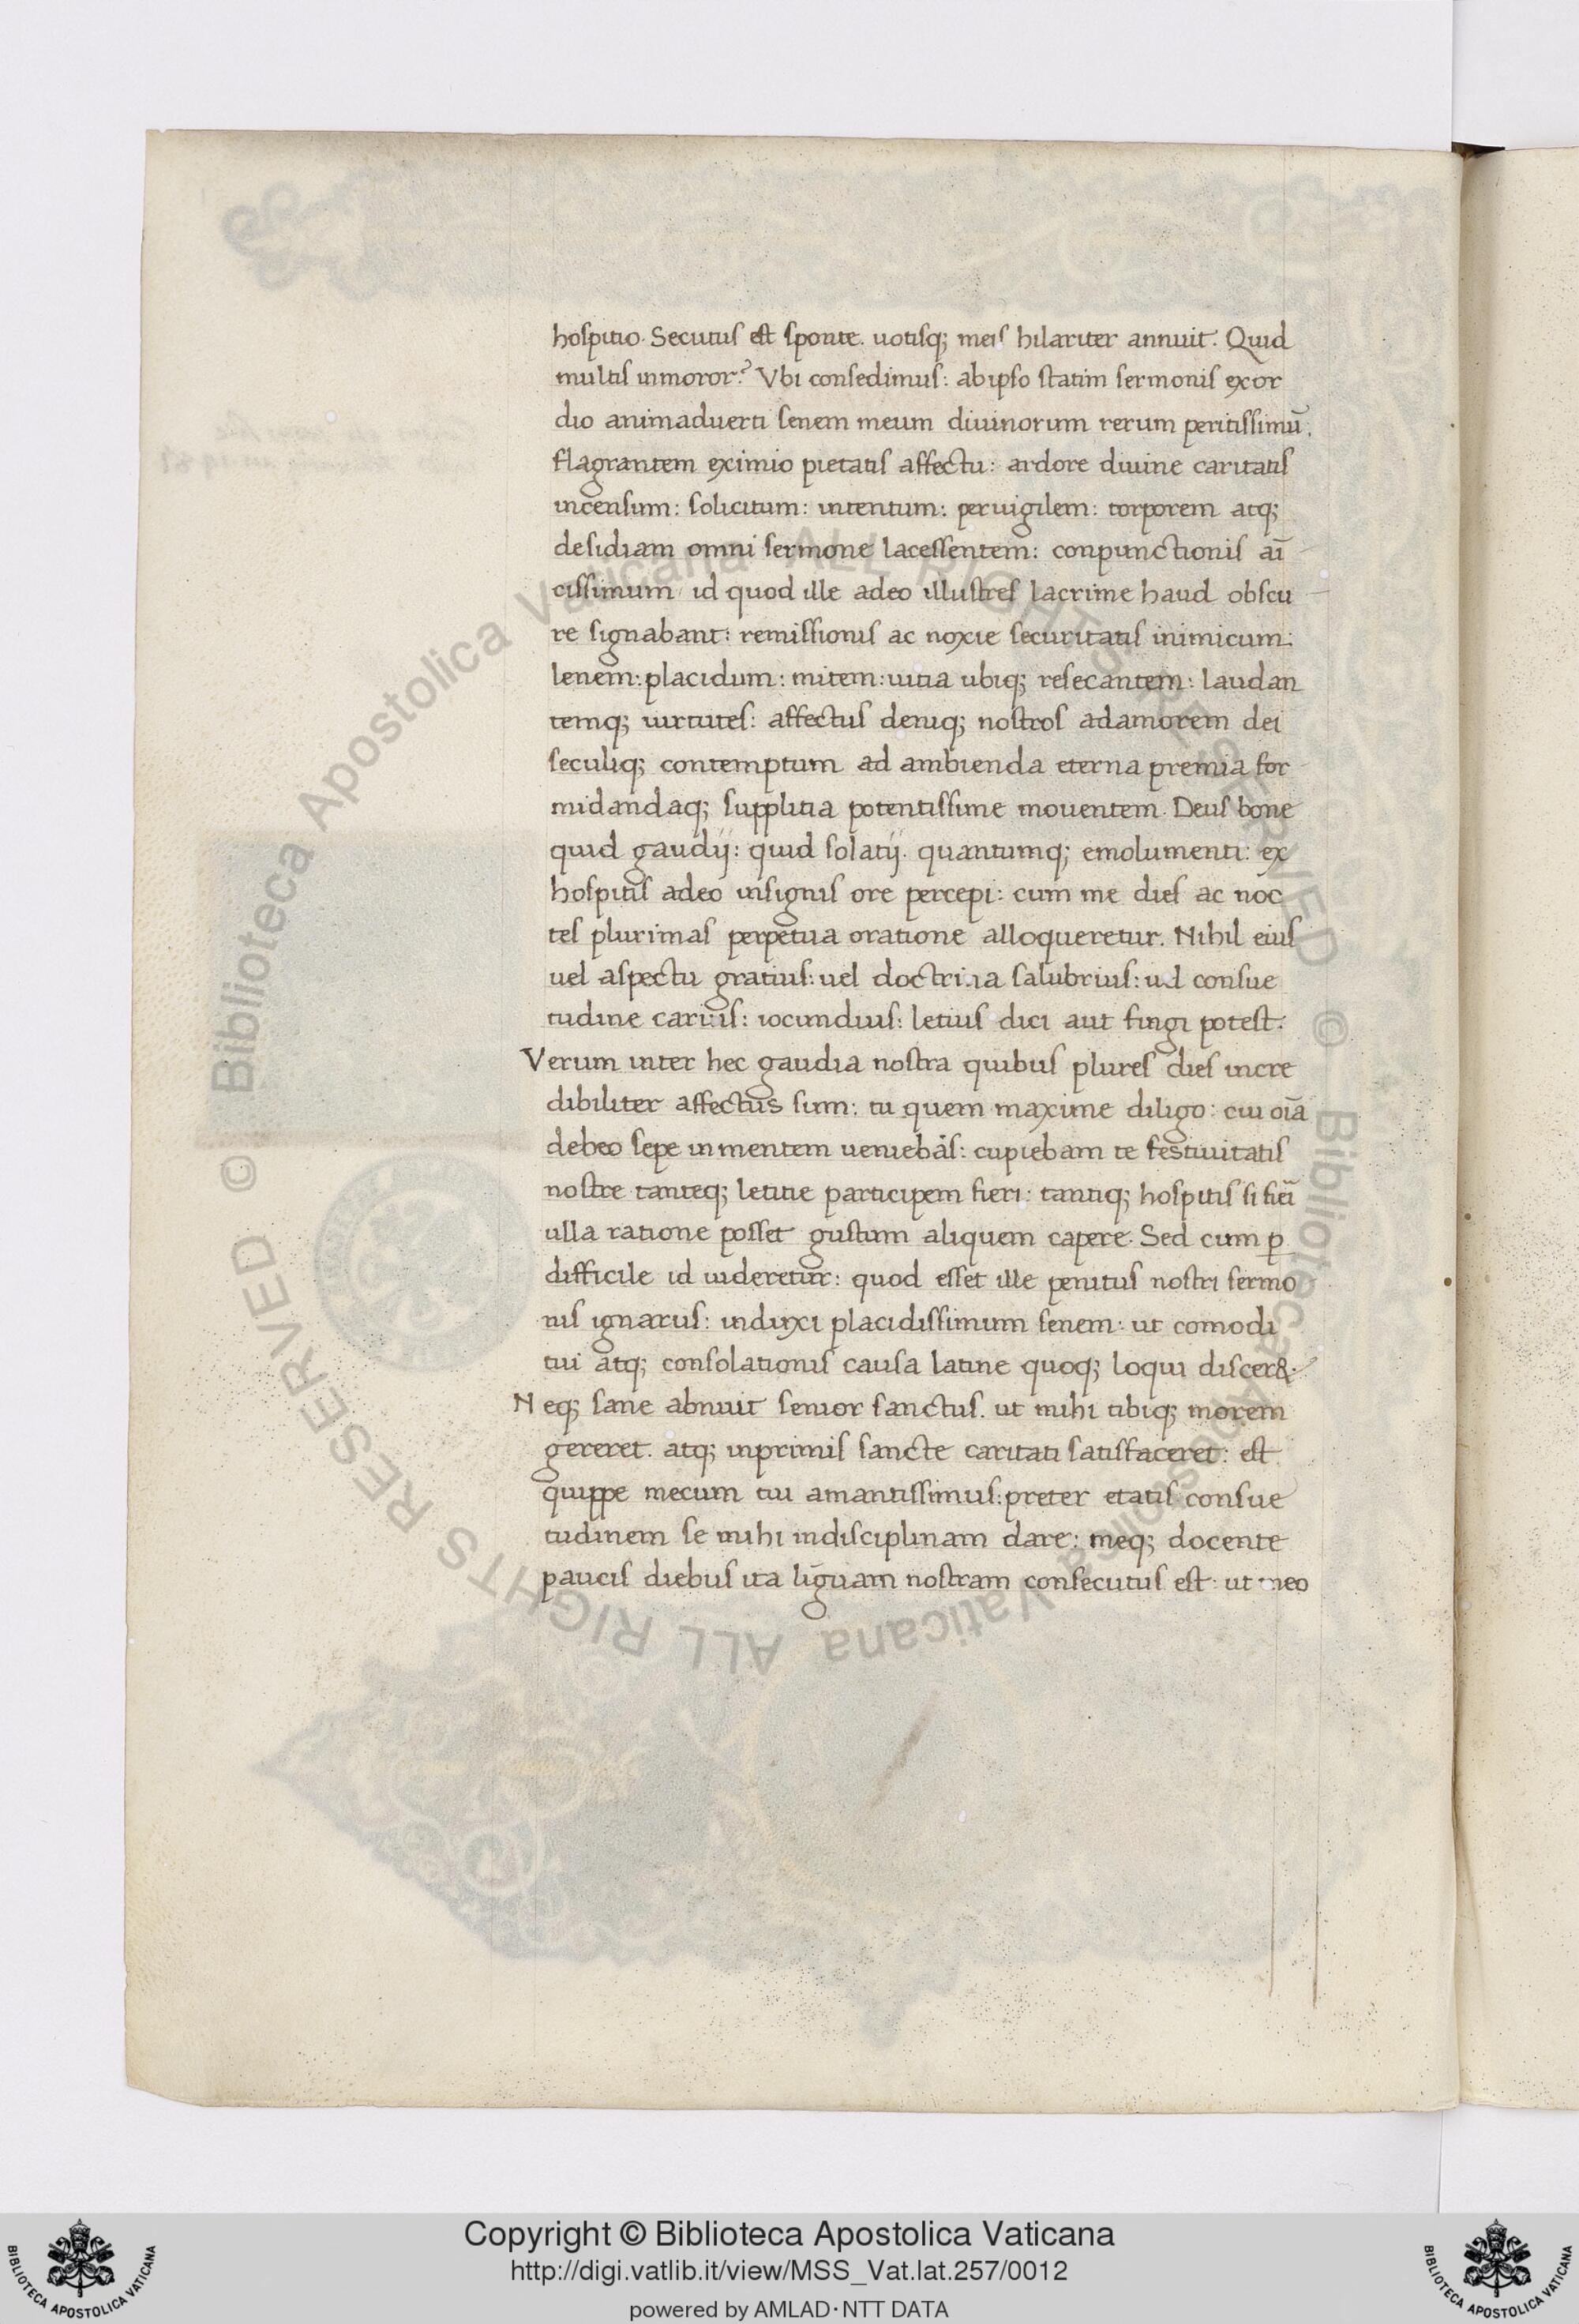 hospitio. Secutus est sponte. uotisq; meis hilariter annuit. Quid
multis inmoror? Vbi consedimus: ab ipso statim sermonis exor
dio animaduerti senem meum diuinorum rerum peritissimū.
flagrantem eximio pietatis affectu: ardore diuine caritatis
incensum: solicitum: intentum: peruigilem: torporem atq;
desidiam omni sermone lacessentem: conpunctionis aī
cissimum id quod ille adeo illustres lacrime haud obscu
re signabant: remissionis ac noxie securitatis inimicum:
lenem: placidum: mitem: uitia ubiq; resecantem: laudan
temq; uirtutes: affectus deniq; nostros ad amorem dei
seculiq; contemptum ad ambienda eterna premia for
midandaq; supplitia potentissime mouentem. Deus bone
quid gaudij: quid solatij. quantumq; emolumenti: ex
hospitis adeo insignis ore percepi: cum me dies ac noc
tes plurimas perpetua oratione alloqueretur. Nihil eius
uel aspectu gratius: uel doctrina salubrius: uel consue
tudine carius: iocundius: letius dici aut fingi potest.
Verum inter hec gaudia nostra quibus plures dies incre
dibiliter affectus sum: tu quem maxime diligo: cui oīa
debeo sepe in mentem ueniebas: cupiebam te festiuitatis
nostre tanteq; letitie participem fieri: tantiq; hospitis si fieī
ulla ratione posset gustum aliquem capere. Sed cum p
difficile id uideretur: quod esset ille penitus nostri sermo
nis ignarus: induxi placidissimum senem: ut comodi
tui atq; consolationis causa latine quoq; loqui discer&.
Neq; sane abnuit senior sanctus. ut mihi tibiq; morem
gereret. atq; inprimis sancte caritati satisfaceret: est
quippe mecum tui amantissimus: preter etatis consue
tudinem se mihi indisciplinam dare: meq; docente
paucis diebus ita liguam nostram consecutus est: ut meo
© Biblioteca Apostolica Vaticana ALL RIGHTS RESERVED
© Biblioteca Apostolica Vaticana ALL RIGHTS RESERVED
Copyright © Biblioteca Apostolica Vaticana
http://digi.vatlib.it/view/MSS_Vat.lat.257/0012
powered by AMLAD·NTT DATA
BIBLIOTECA APOSTOLICA VATICANA
BIBLIOTECA APOSTOLICA VATICANA